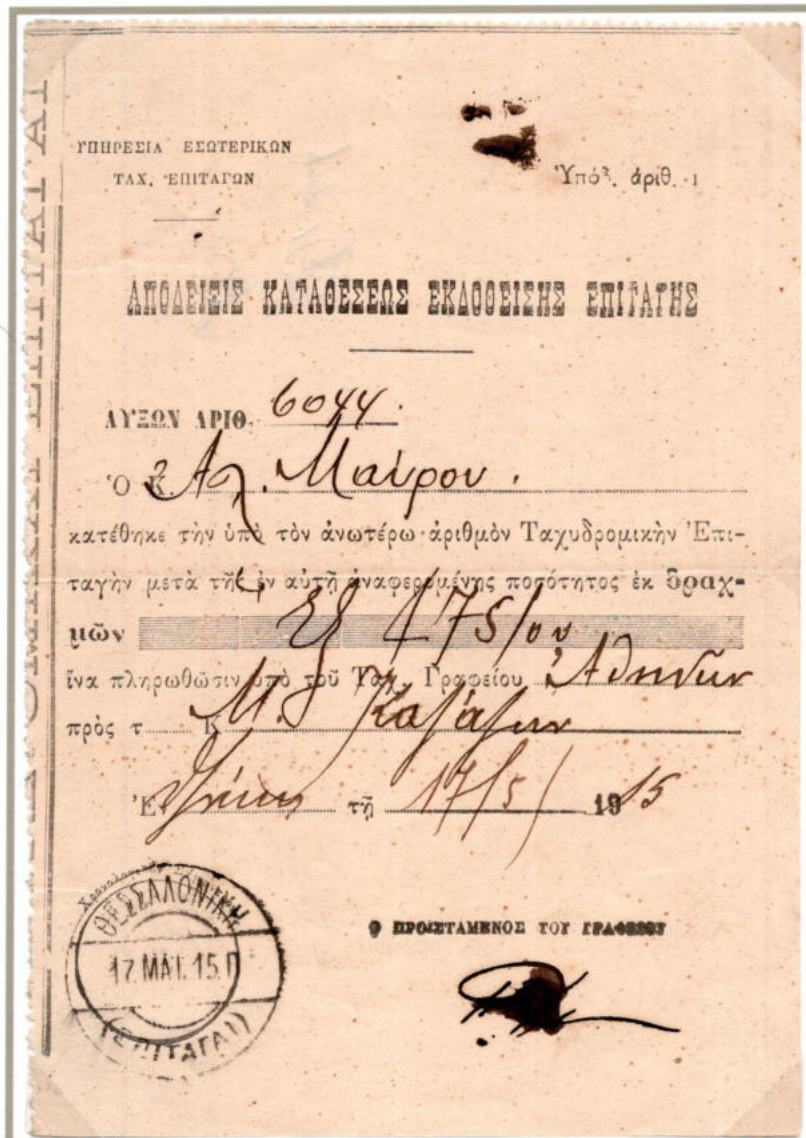 ΥΠΗΡΕΣΙΑ ΕΣΩΤΕΡΙΚΩΝ
ΤΑΧ. ΕΠΙΤΑΓΩΝ
Ὑπόδ. ἀριθ. 1
ΑΠΟΔΕΙΞΙΣ ΚΑΤΑΘΕΣΕΩΣ ΕΚΔΟΘΕΙΣΗΣ ΕΠΙΤΑΓΗΣ
ΑΥΞΩΝ ΑΡΙΘ. 6044.
Ὁ Κ. Αλ. Μαύρου.
κατέθηκε τὴν ὑπὸ τὸν ἀνωτέρω ἀριθμὸν Ταχυδρομικὴν Ἐπι-
ταγὴν μετὰ τῆς ἐν αὐτῇ ἀναφερομένης ποσότητος ἐκ δραχ-
μῶν 475/00
ἵνα πληρωθῶσιν ὑπὸ τοῦ Ταχ. Γραφείου Ἀθηνῶν
πρὸς τ Κ
Ἐν τῇ 17/5/ 1915
ΘΕΣΣΑΛΟΝΙΚΗ
17.ΜΑΪ.15.Π
(ΕΠΙΤΑΓΑΙ)
Ο ΠΡΟΪΣΤΑΜΕΝΟΣ ΤΟΥ ΓΡΑΦΕΙΟΥ